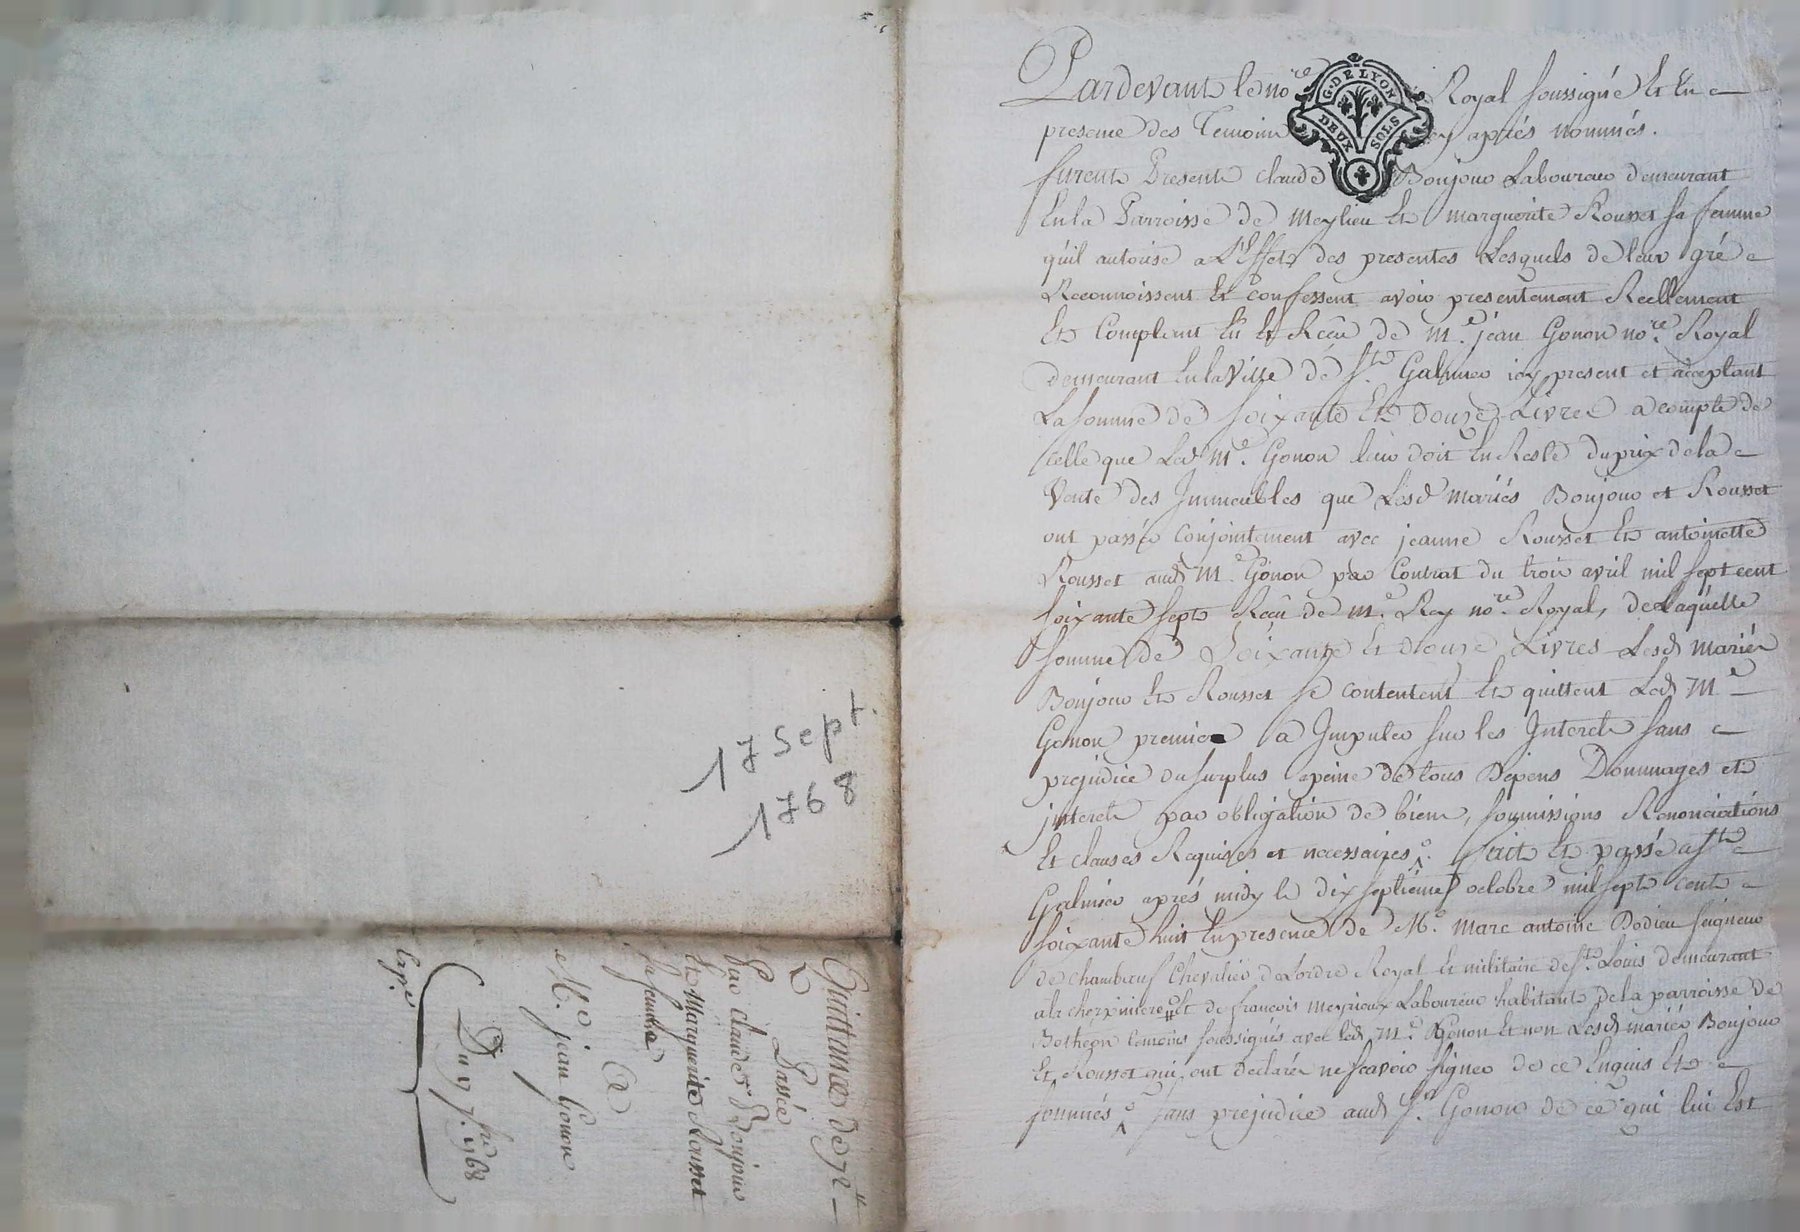 Pardevant le no.re Royal soussigné Et En
presence des Temoins cy aprés nommés.
furent Presents Claude Boujour Laboureur demeurant
En la Parroisse de Meylieu Et Marguerite Rousset sa femme
qu'il autorise a L'Effet des presentes Lesquels de leur gré
Reconnoissent Et confessent avoir presentement Reellement
Et Comptant Eu Et Reçu de M.e jean Gonon no.re Royal
demeurant En la Ville de St. Galmier icy present et acceptant
La somme de soixante Et douze Livres a compte de
celle que Led M.e Gonon leur doit En Reste du prix de la
Vente des Immeubles que Lesd mariés Boujour et Rousset
ont passée Conjointement avec jeanne Rousset Et antoinette
Rousset aud M.e Gonon par Contrat du trois avril mil sept cent
soixante sept Reçu de M.e Rey no.re Royal, de Laquelle
somme de Soixante Et douze Livres Lesd mariés
Boujour Et Rousset se contentent Et quittent Led M.e
Gonon premier a Imputer sur les Interets sans
prejudice du surplus a peine de tous Depens Dommages et
interets par obligation de biens, soumissions Renonciations
Et clauses Requises et necessaires. fait Et passé a St.
Galmier aprés midy le dix septiéme octobre mil sept cent
soixante huit En presence de M.e Marc antoine Dodieu seigneur
de Chambœuf Chevalier de Lordre Royal Et militaire de St. Louis demeurant
a la Et de françois Meyrieux Laboureur habitant de la parroisse de
Botheon temoins soussignés avec led M.e Gonon Et non Lesd mariés Boujour
Et Rousset qui ont declarés ne sçavoir signer de ce Enquis Et
sommés sans prejudice aud Sr. Gonon de ce qui lui Est
G. DE LYON
DEUX SOLS
17 Sept.
1768
Quittance de 72 ll
Passée
Par Claude Boujour
Et Marguerite Rousset
sa femme
A
M.e jean Gonon
Du 17 7.bre 1768
Exp.é